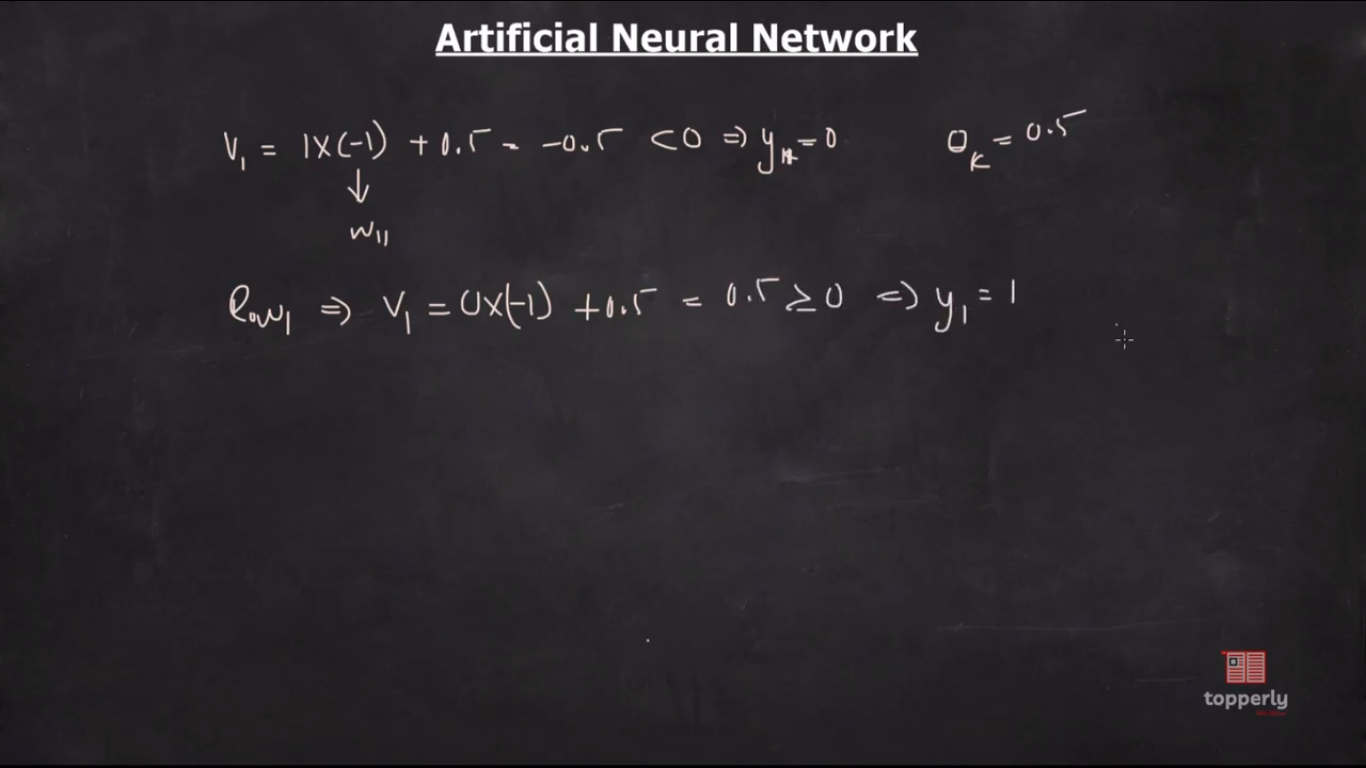 Artificial Neural Network
V₁ = 1×(-1) + 0.5 = -0.5 < 0 ⇒ yₖ = 0 θₖ = 0.5
↓
w₁₁
Row₁ ⇒ V₁ = 0×(-1) + 0.5 = 0.5 ≥ 0 ⇒ y₁ = 1
topperly